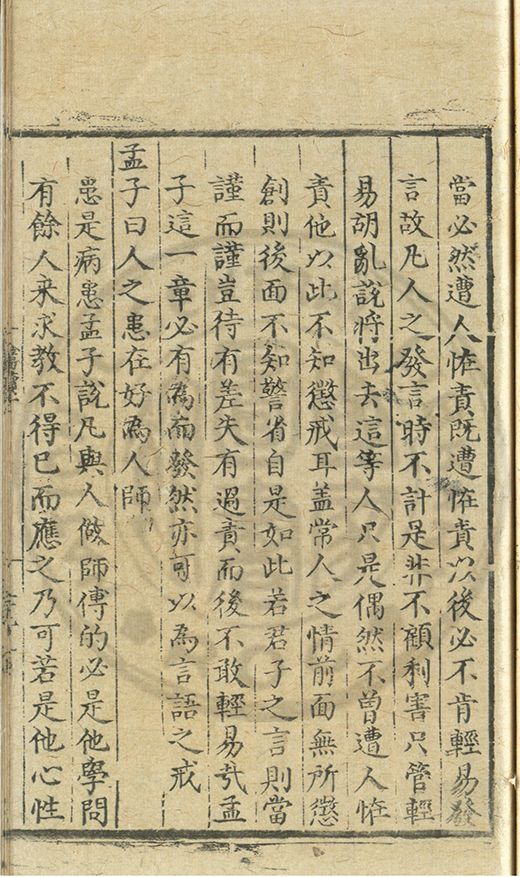 當必然遭人恠責既遭恠責以後必不肯輕易發
言故凡人之發言時不計是非不顧利害只管輕
易胡亂說將出去這等人只是偶然不曾遭人恠
責他以此不知懲戒耳盖常人之情前面無所懲
創則後面不知警省自是如此若君子之言則當
謹而謹豈待有差失有過責而後不敢輕易㢤孟
子這一章必有為而發然亦可以為言語之戒
孟子曰人之患在好為人師
患是病患孟子說凡與人做師傅的必是他學問
有餘人來求教不得已而應之乃可若是他心性